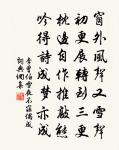 窗外風聲又雪聲
初更展轉到三更
枕邊自作推敲熊
吟得詩成夢亦成
李曾伯雪夜不寐偶成
詞典網集